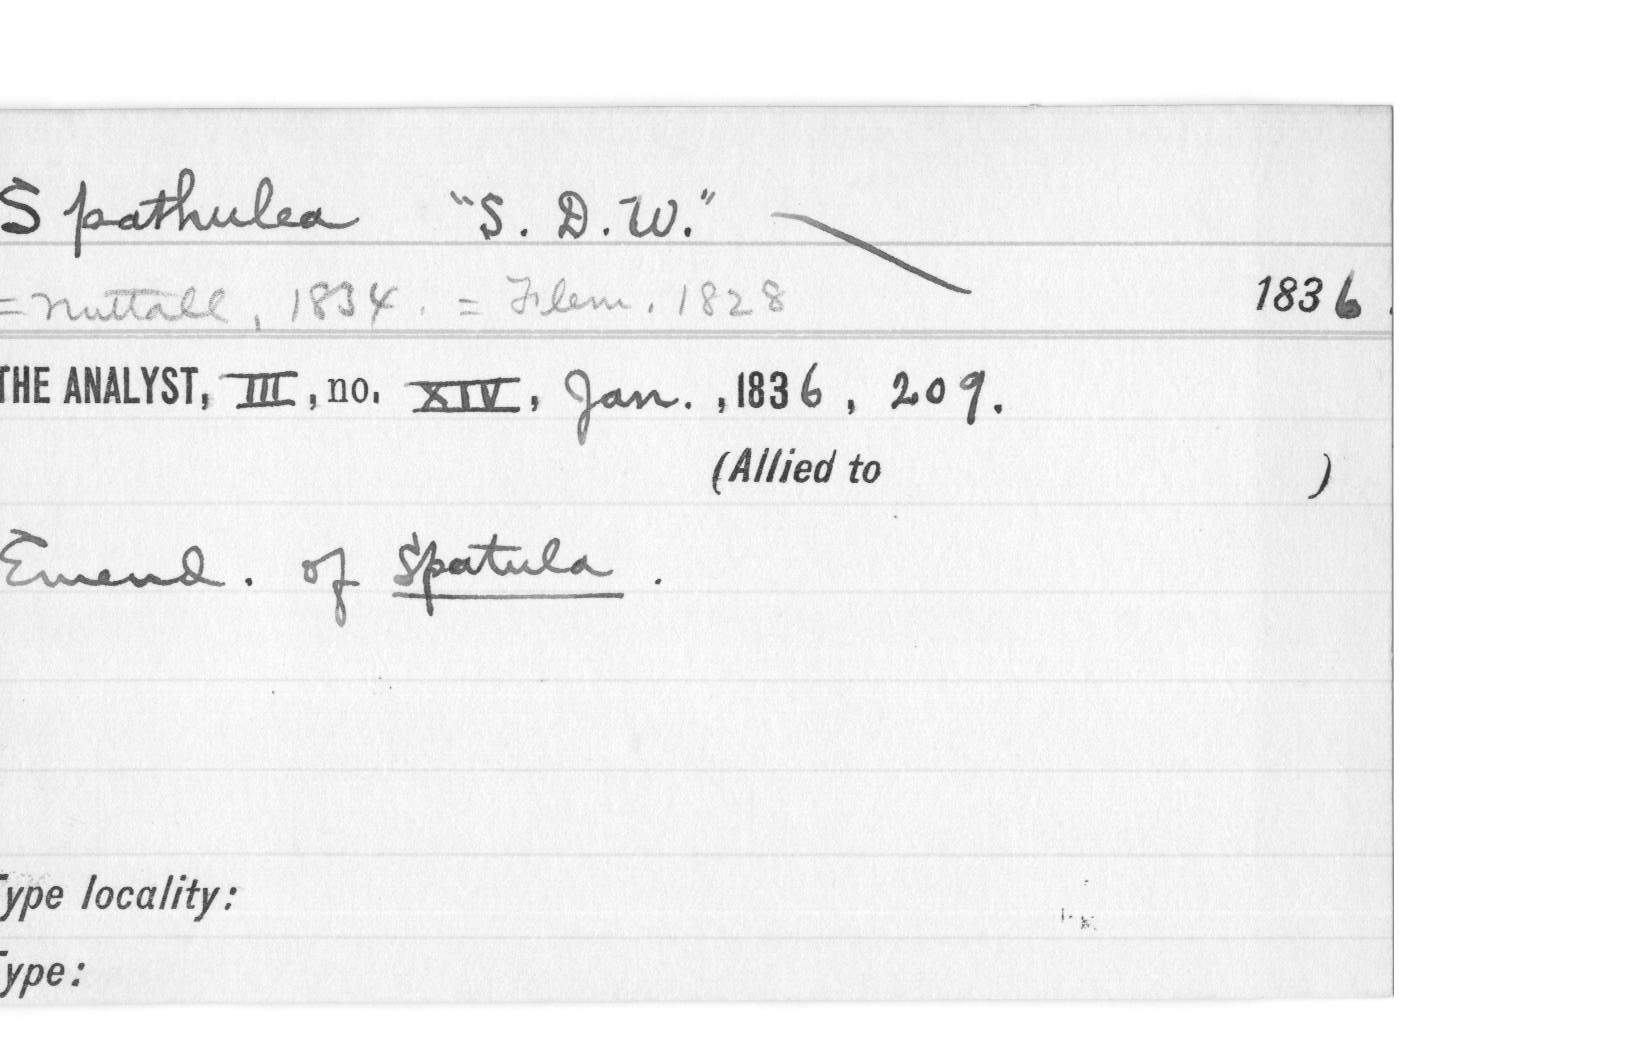 Spathulea "S. D. W."
= Nuttall, 1834. = Flem. 1828
1836.
THE ANALYST, III, no. XIV, Jan., 1836, 209.
(Allied to )
Emend. of Spatula.
Type locality:
Type: